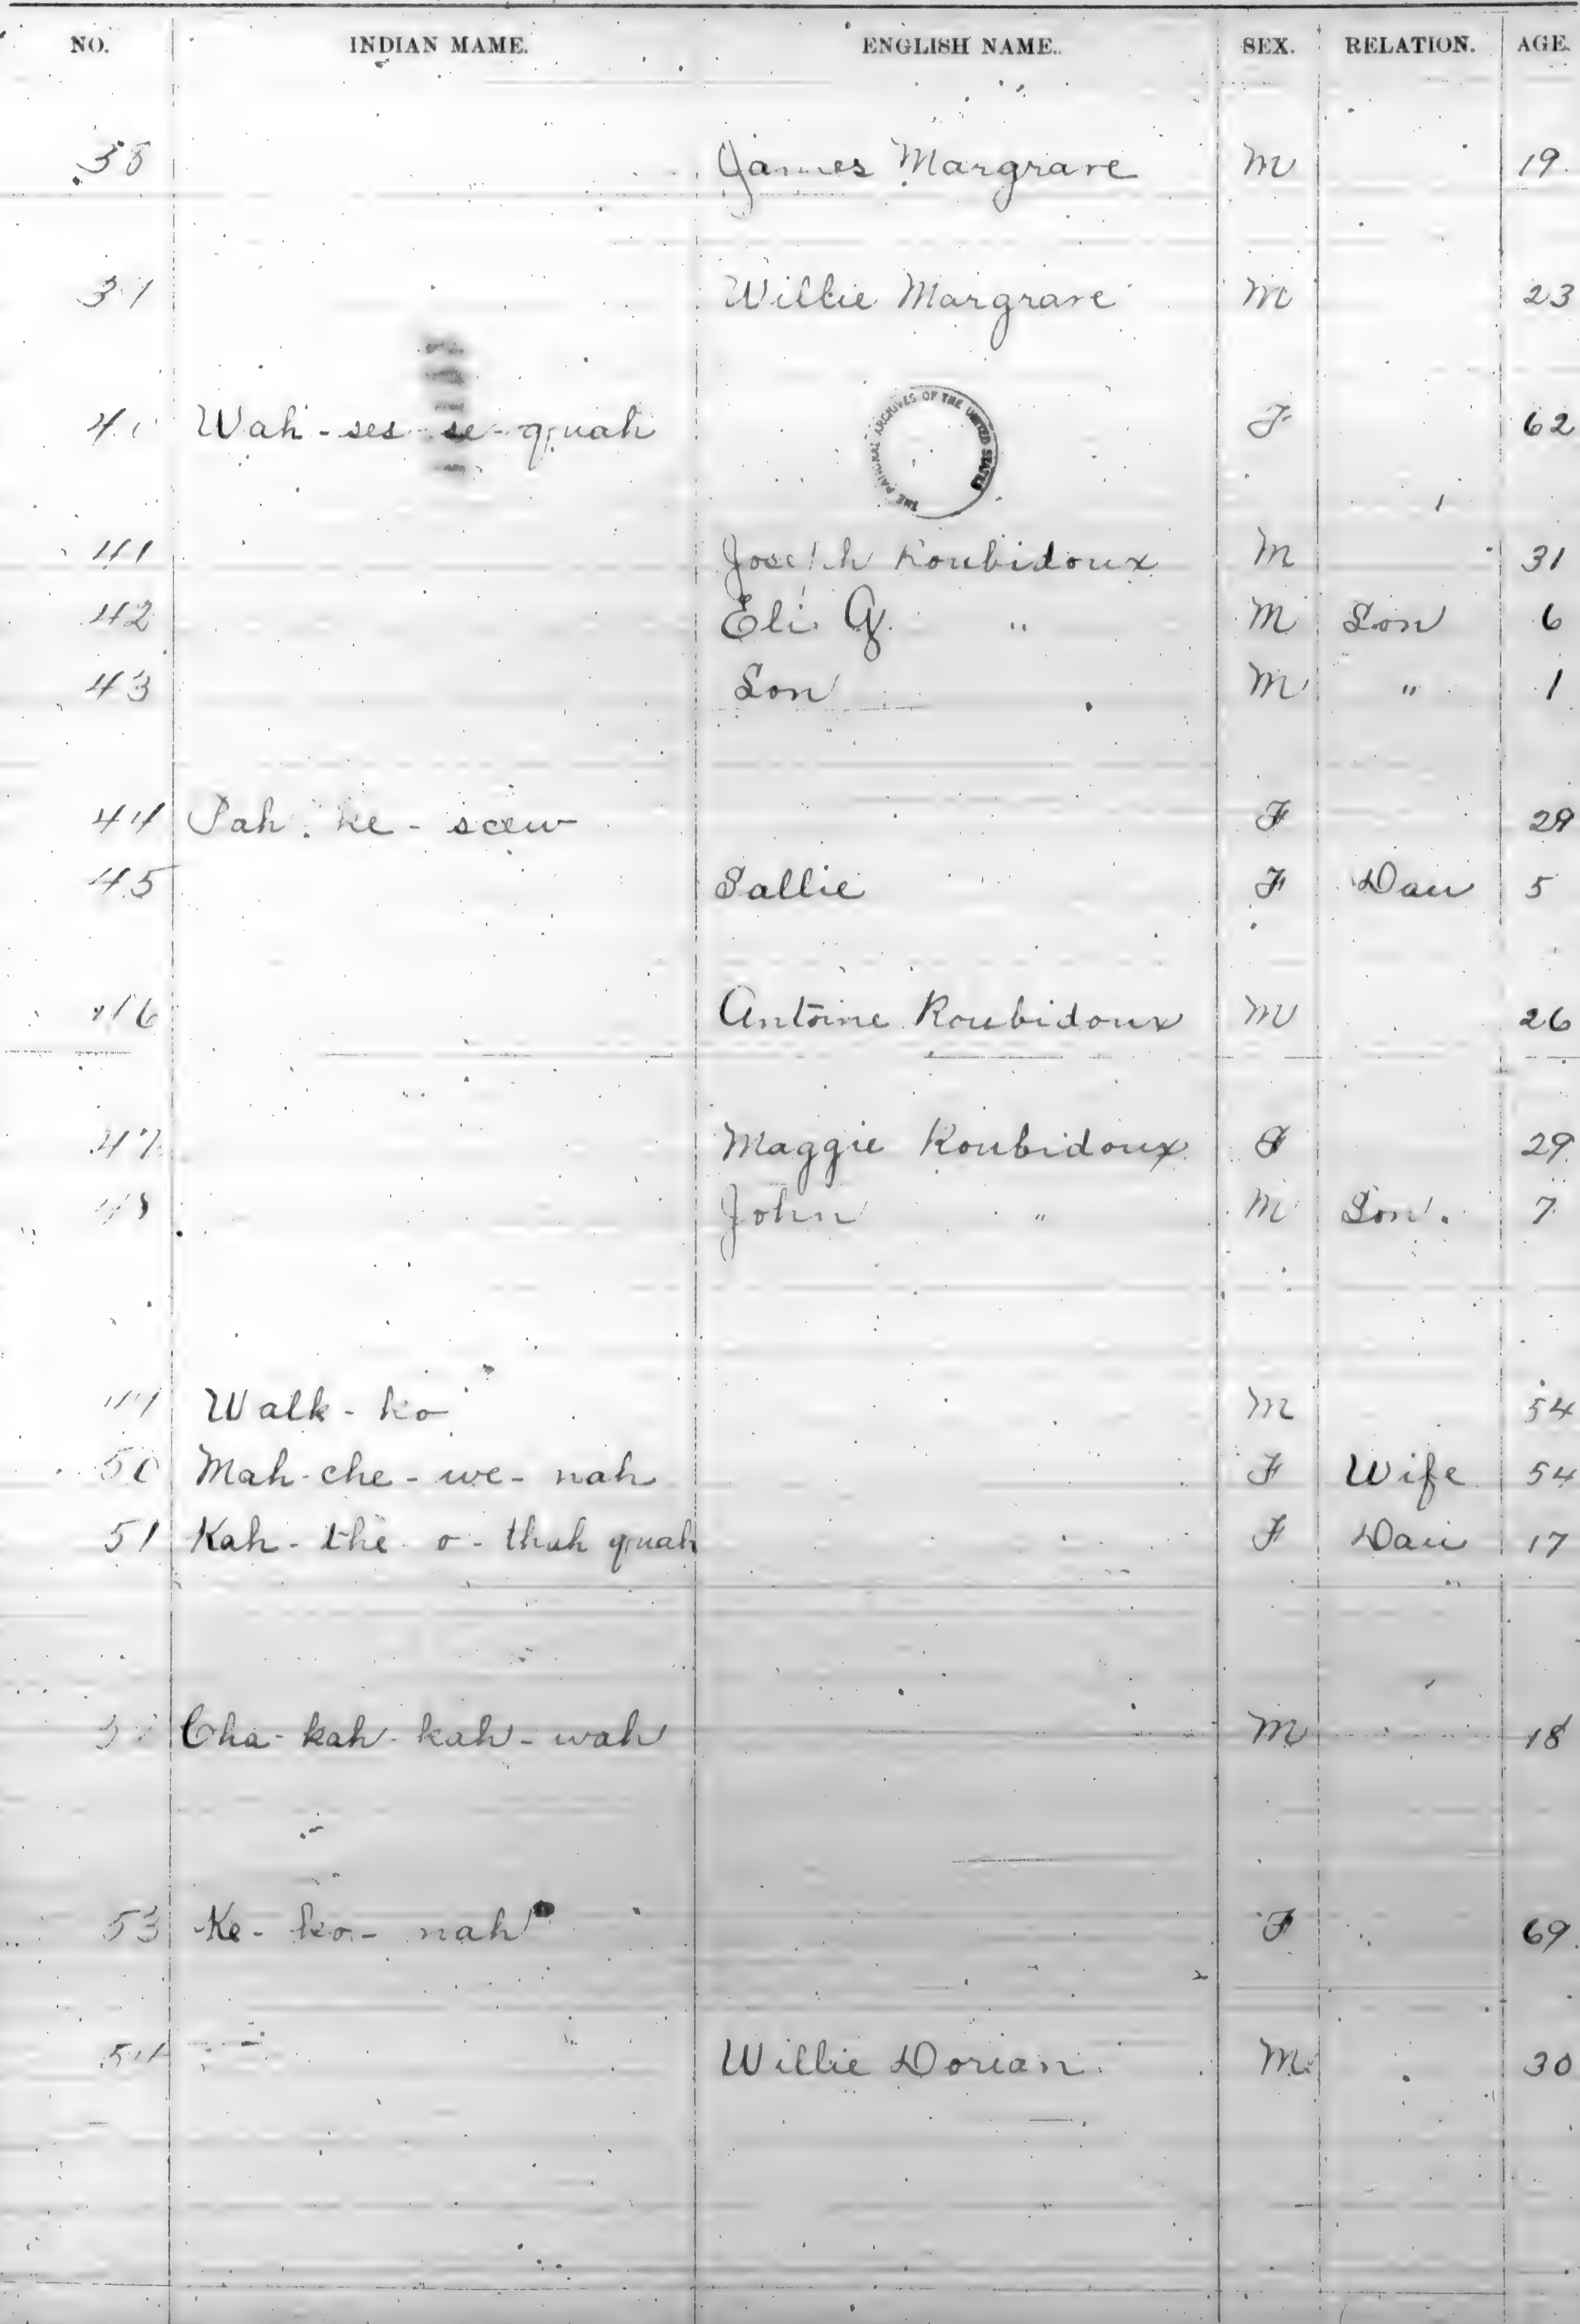 NO. INDIAN MAME. ENGLISH NAME. SEX. RELATION. AGE.
38 James Margrave M 19
Willie Margrave M 23
THE NATIONAL ARCHIVES OF THE UNITED STATES
40 Wah-ses-se-quah F 62
41 Joseph Roubidoux M 31
42 Eli G. " M Son 6
43 Son M " 1
44 Pah-ke-scew F 29
45 Sallie " F Dau 5
46 Antoine Roubidoux M 26
47 Maggie Roubidoux F 29
48 John " M Son. 7
49 Walk-ko M 54
50 Mah-che-we-nah F Wife 54
51 Kah-the-o-thuh quah F Dau 17
52 Cha-kah-kah-wah M 18
53 Ke-ko-nah F 69
54 Willie Dorian M 30